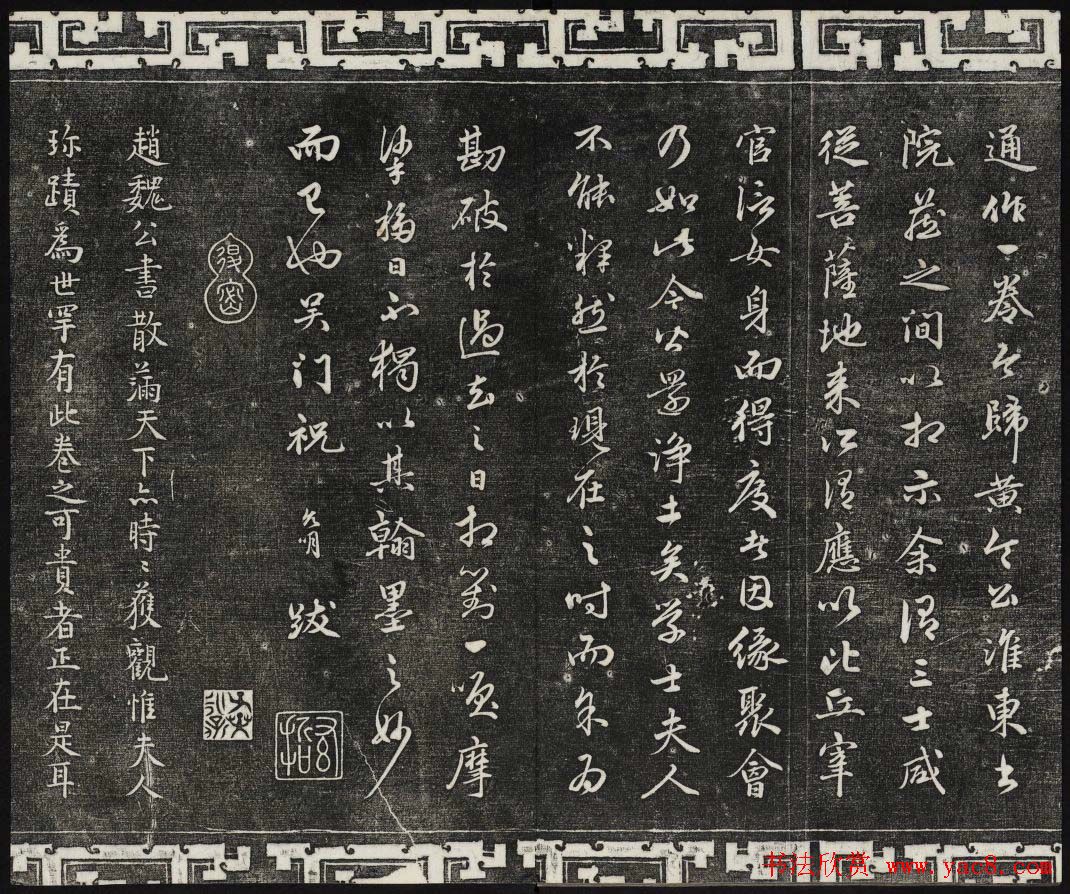 通作一卷歸黄令公淮東書
院之间以相示余謂三士咸
從菩薩地来所謂應以比丘宰
官諸女身而得度者因緣聚會
乃如此今公淨土矣学士夫人
不能釋然於現在之时而余为
勘破於過去之日相對一噱摩
挲移日不獨以其翰墨之妙
而已也吴门祝 允明 跋
趙魏公書散滿天下亦時〻獲觀惟夫人
珎蹟爲世罕有此卷之可貴者正在是耳
书法欣赏 www.yac8.com